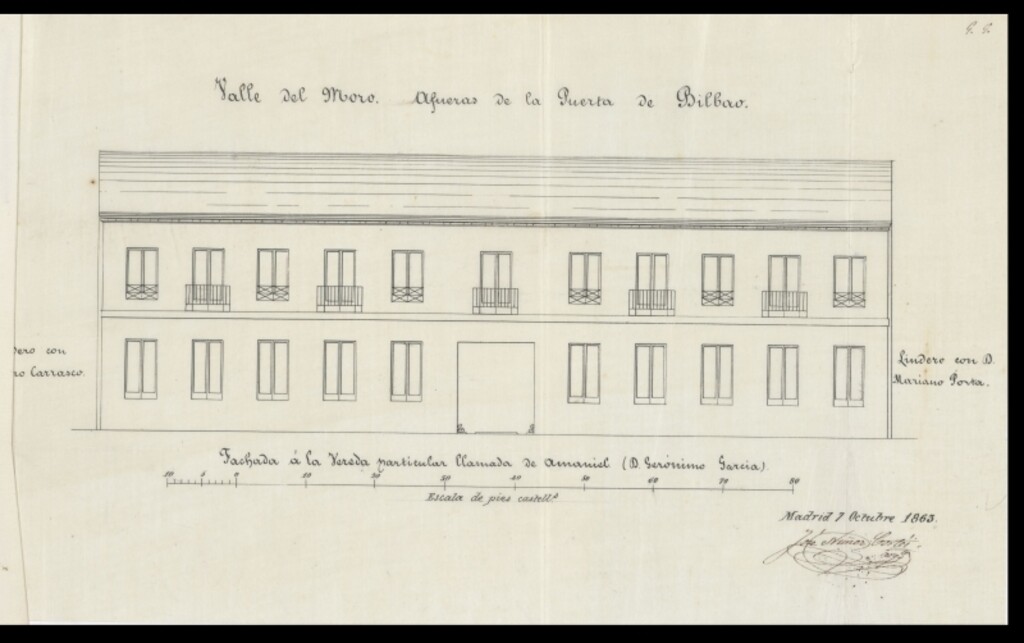 Valle del Moro. Afueras de la Puerta de Bilbao.
dero con
ro Carrasco.
Lindero con D.
Mariano Porta.
Fachada á la Vereda particular llamada de Amaniel (D. Gerónimo Garcia)
10 5 0 10 20 30 40 50 60 70 80
Escala de pies castell.s
Madrid 7 Octubre 1863.
José Nuñez